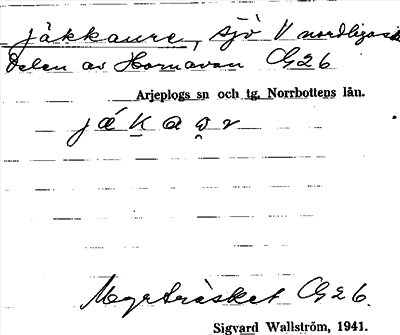 jäkkaure, sjö V nordligaste
delen av Hornavan G26
Arjeplogs sn och tg. Norrbottens län.
Myrträsket G26.
Sigvard Wallström, 1941.